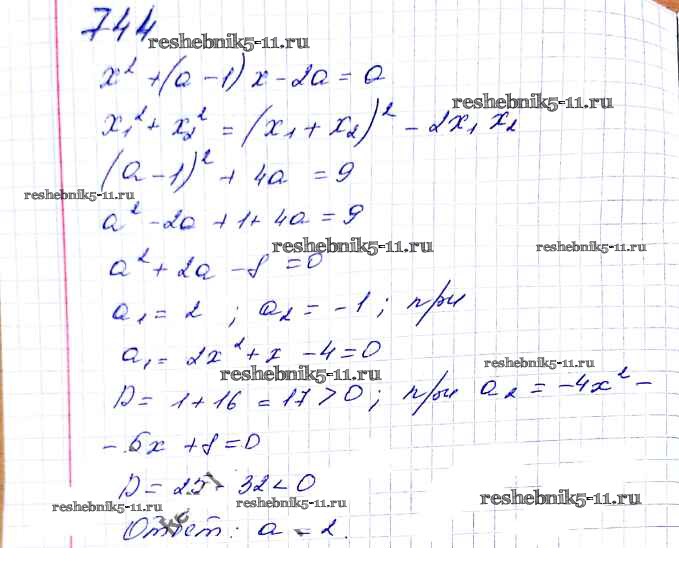 744
reshebnik5-11.ru
x² + (a - 1) x - 2a = a
reshebnik5-11.ru
x₁² + x₂² = (x₁ + x₂)² - 2x₁ x₂
(a - 1)² + 4a = 9
reshebnik5-11.ru
a² - 2a + 1 + 4a = 9
reshebnik5-11.ru
reshebnik5-11.ru
a² + 2a - 8 = 0
a₁ = 2 ; a₂ = -1 ; при
a₁ = 2x² + x - 4 = 0
reshebnik5-11.ru
reshebnik5-11.ru
D = 1 + 16 = 17 > 0 ; при a₂ = -4x² -
- 5x + 8 = 0
D = 25 - 32 < 0
reshebnik5-11.ru
reshebnik5-11.ru
reshebnik5-11.ru
Ответ: a = 2.